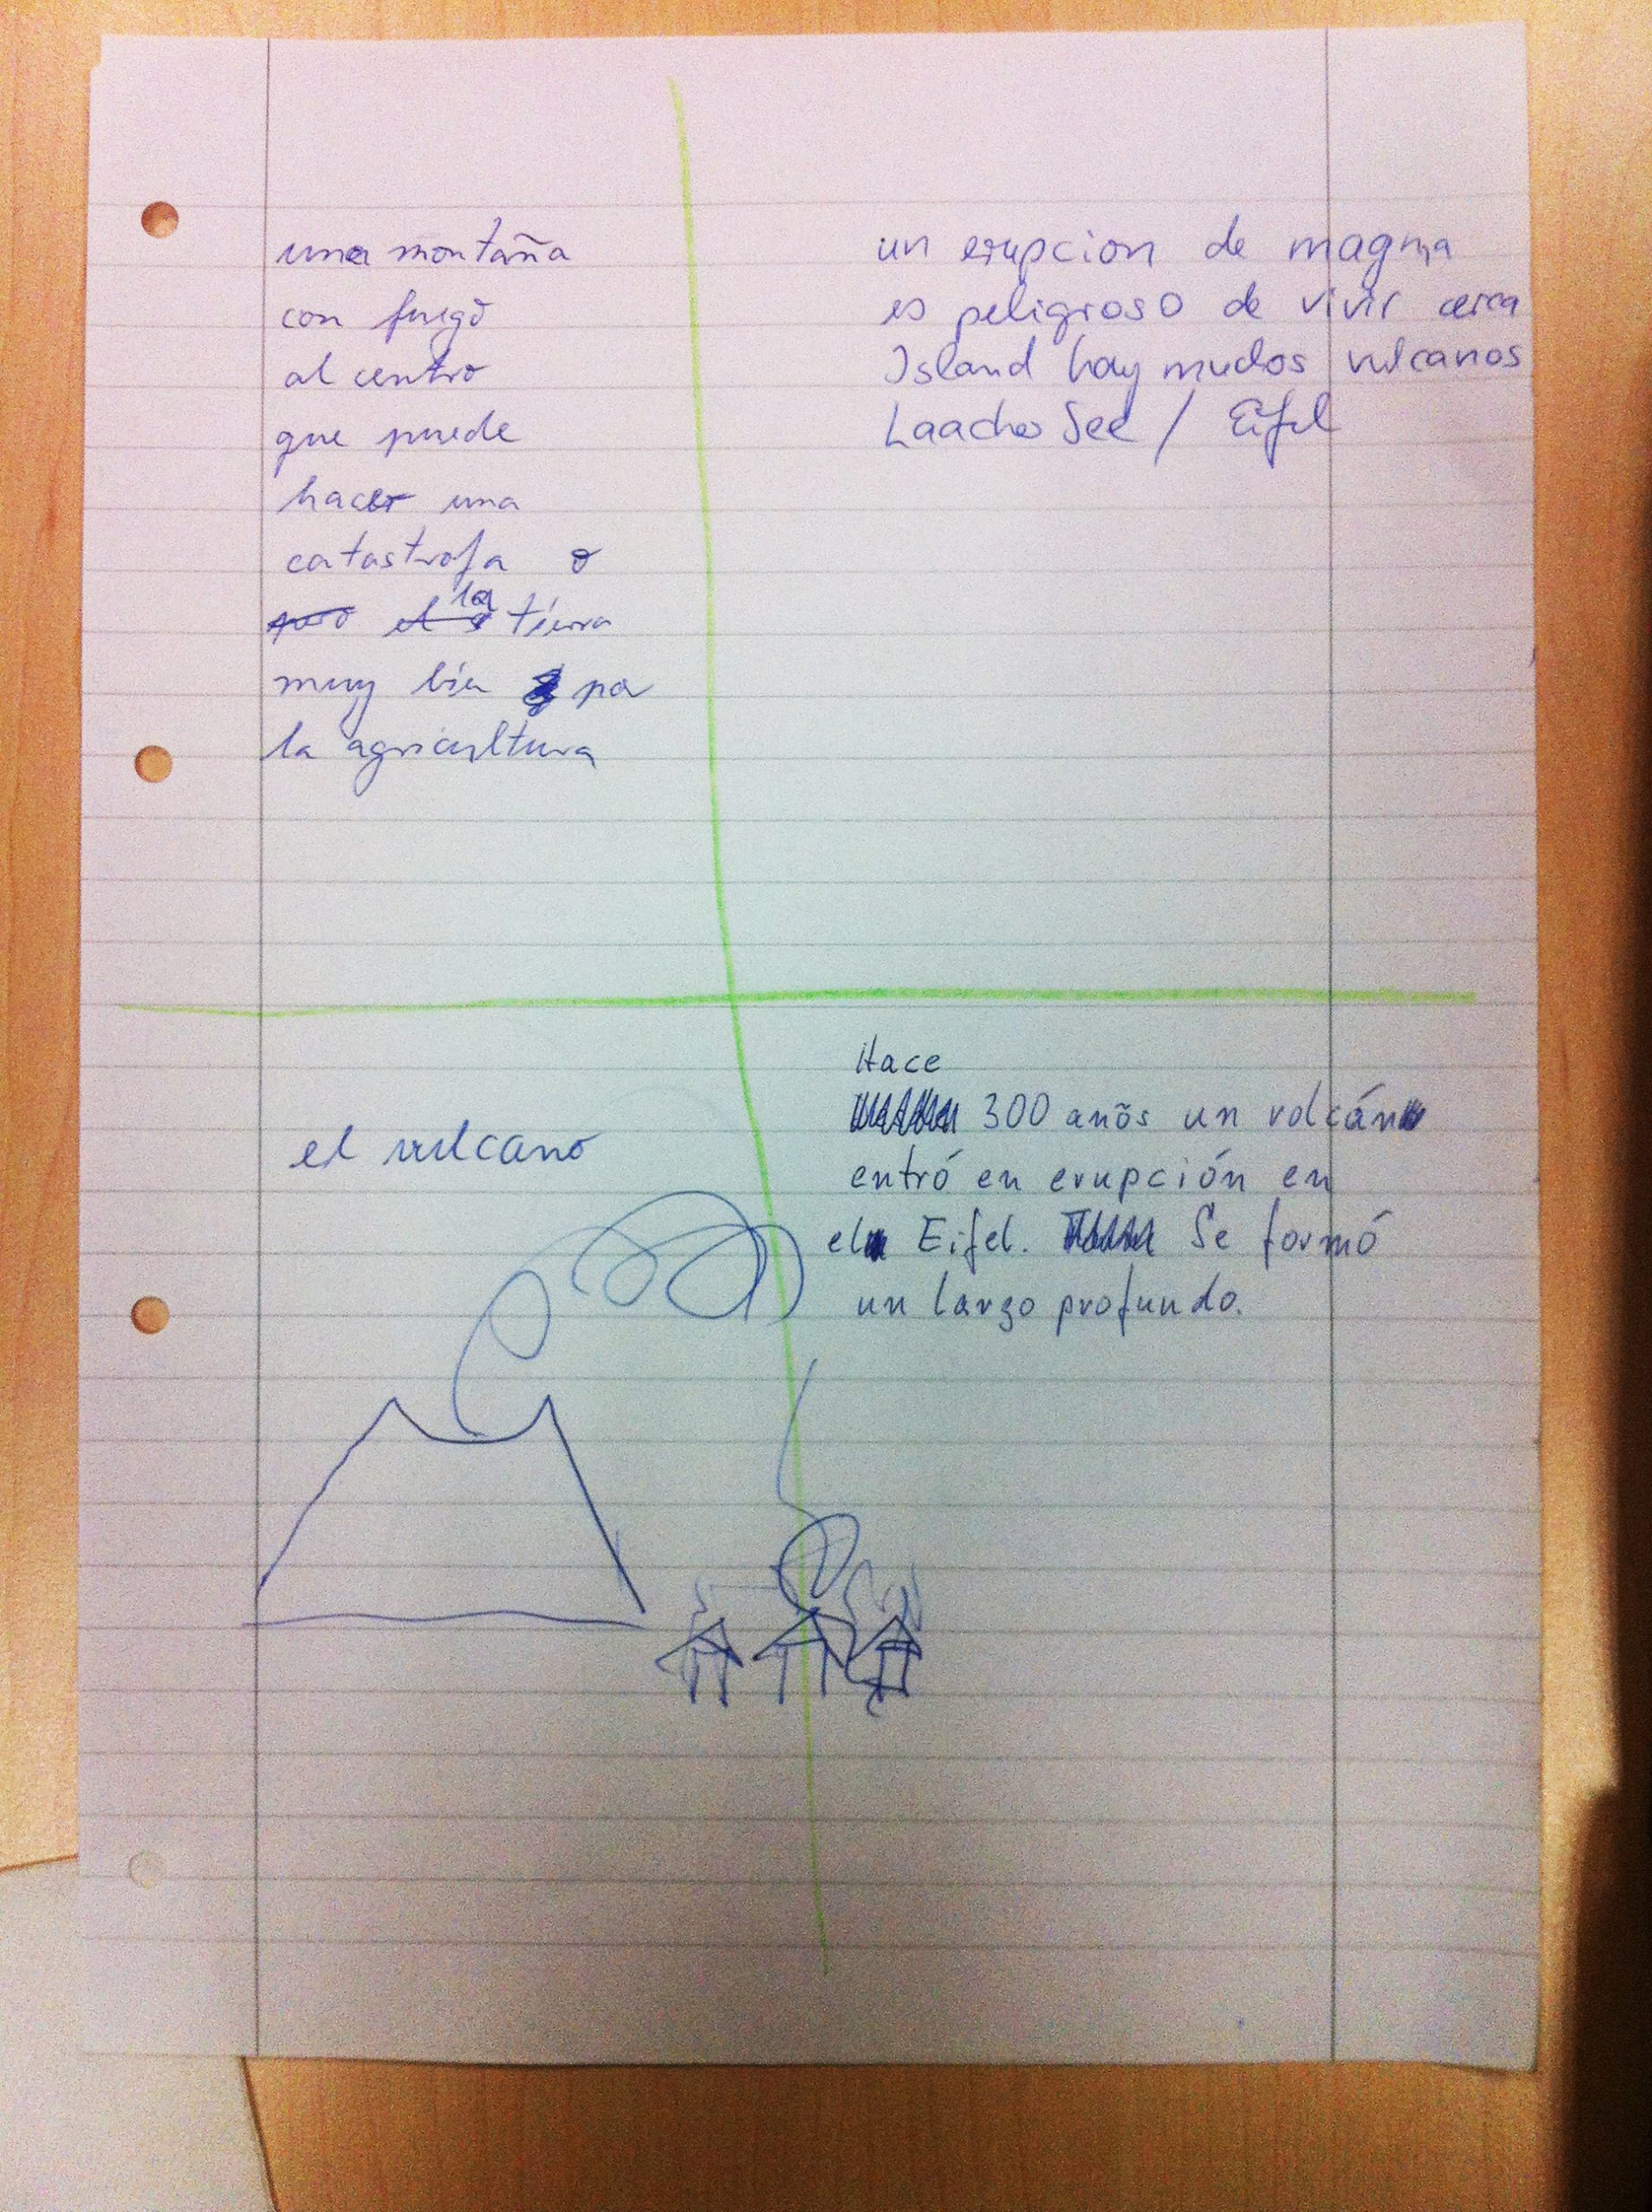 una montaña
con fuego
al centro
que puede
hacer una
catastrofa o
la tierra
muy bien pa
la agricultura
un erupcion de magma
es peligroso de vivir cerca
Island hay muchos vulcanos
Laacher See / Eifel
el vulcano
Hace
300 anõs un volcán
entró en erupción en
el Eifel. Se formó
un largo profundo.